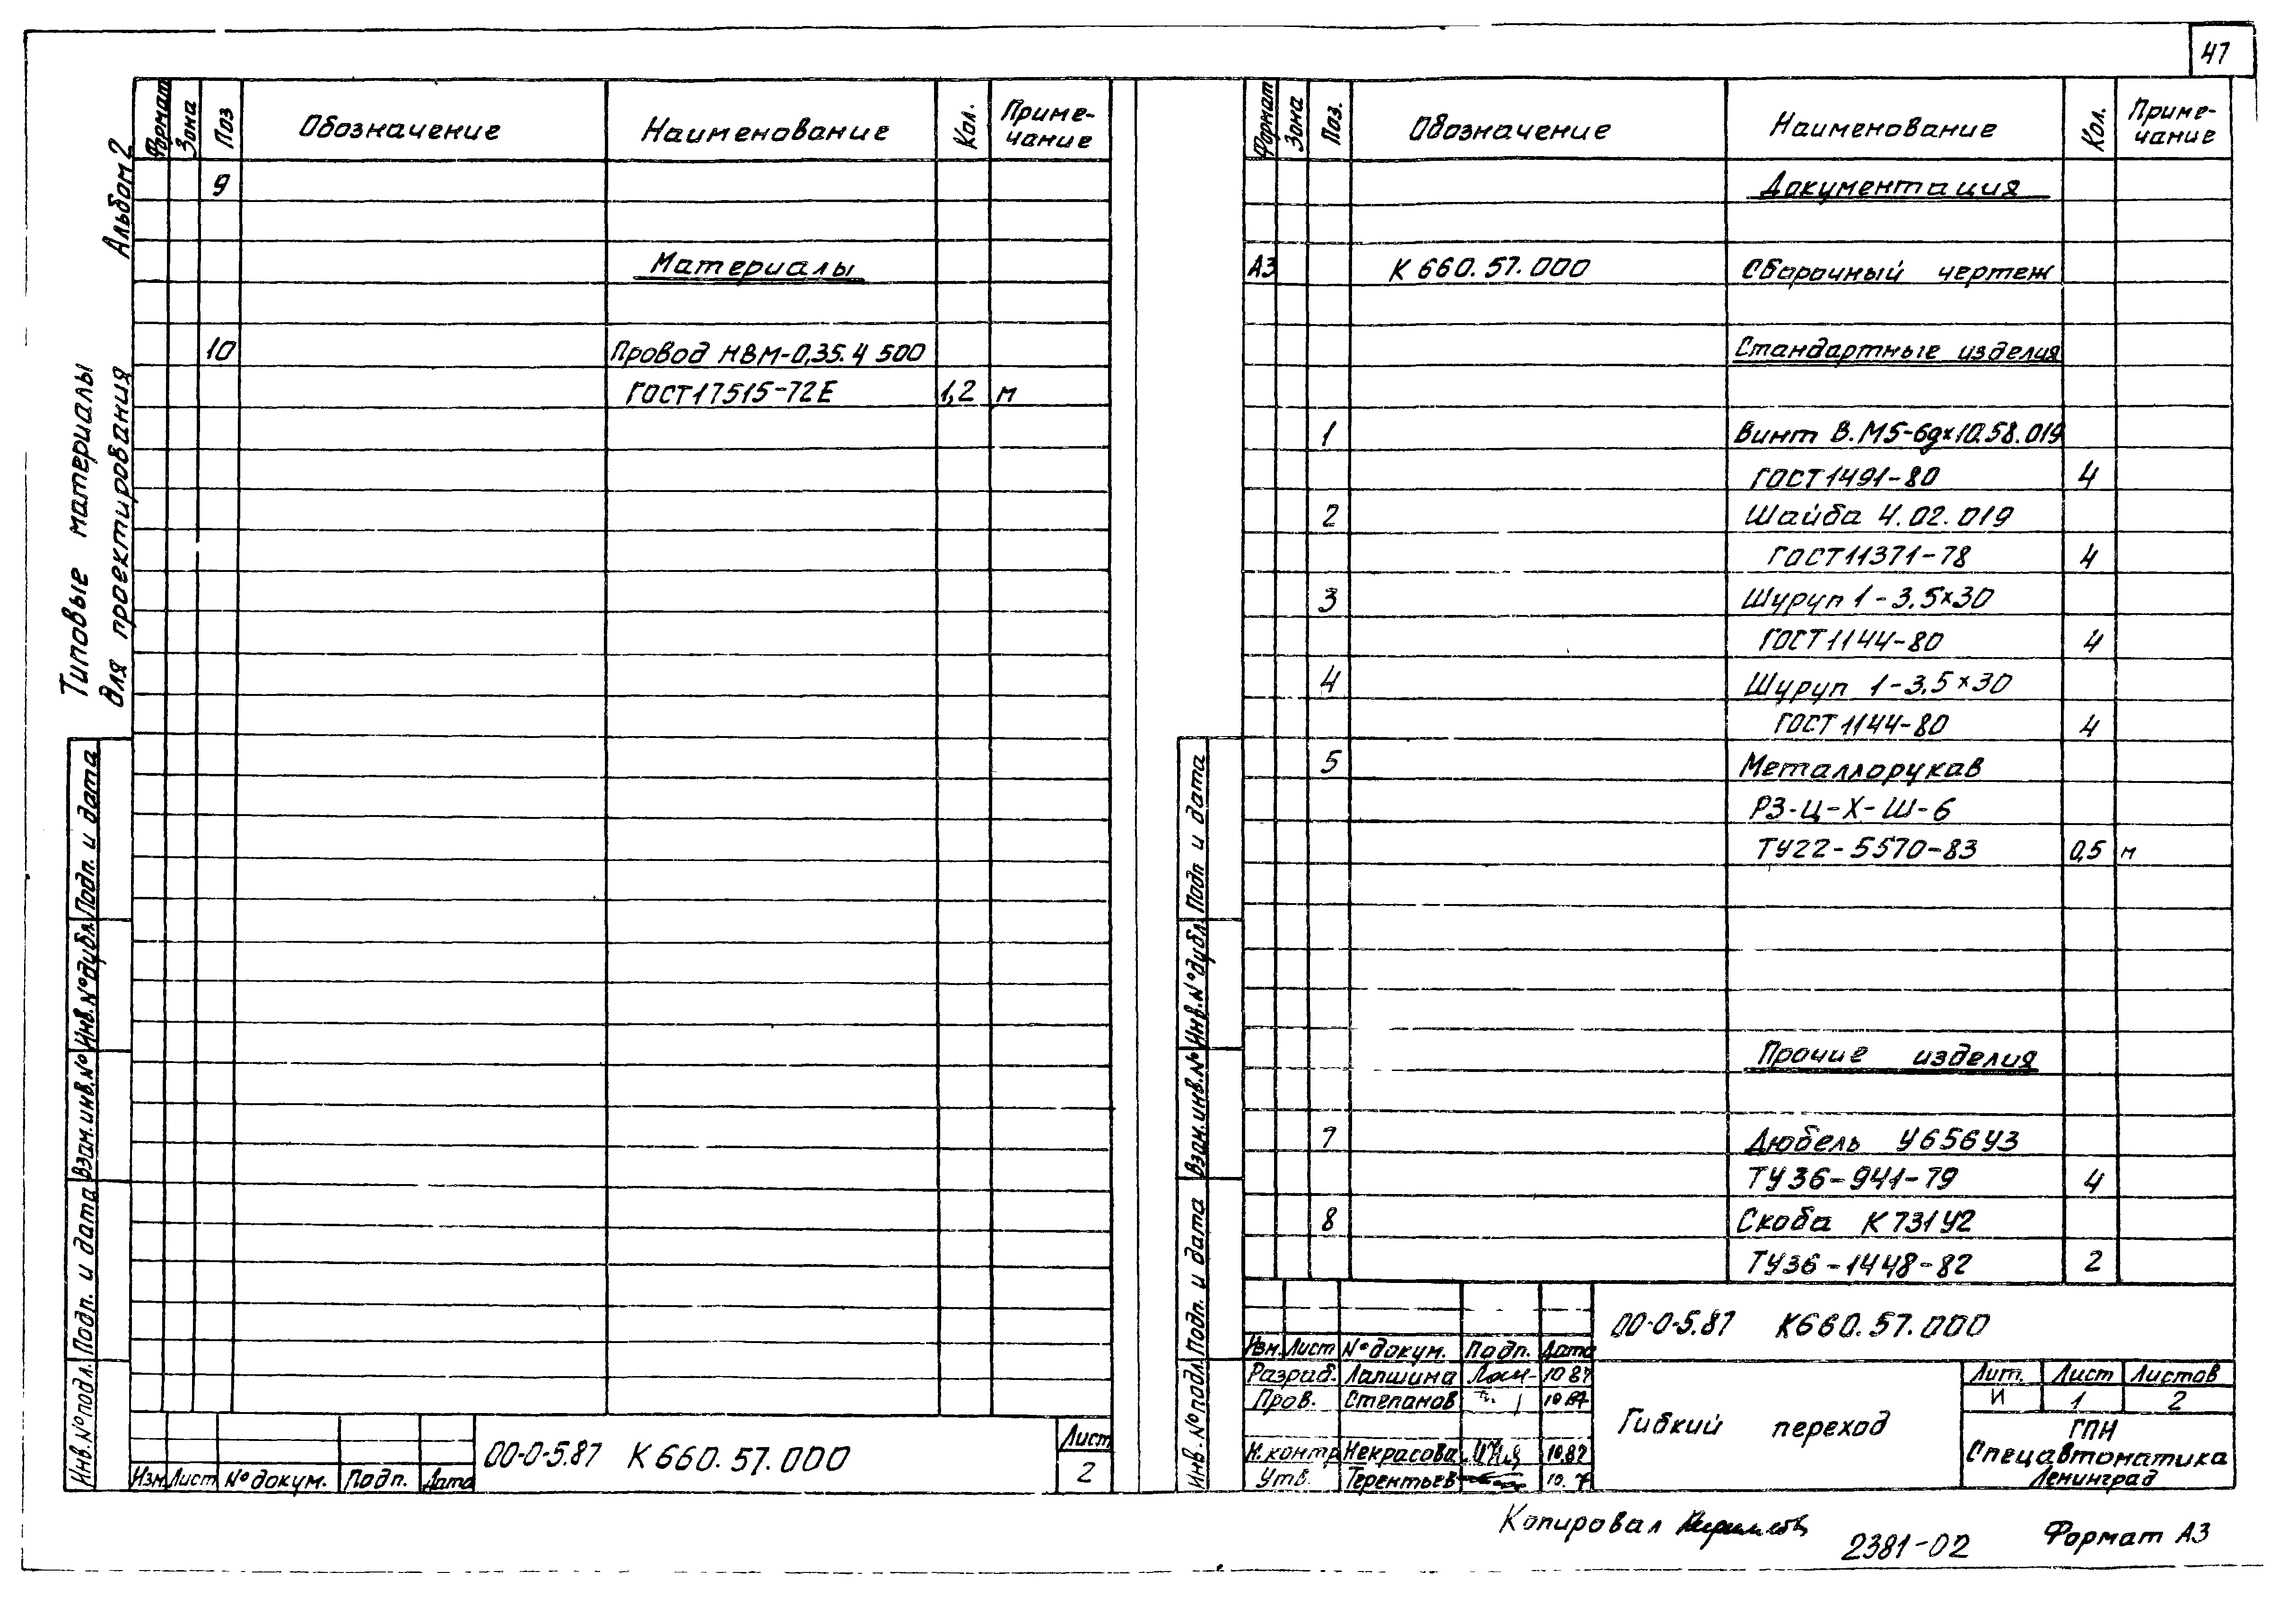 47
Типовые материалы
для проектирования
Альбом 2
Формат Зона Поз Обозначение Наименование Кол. Приме-
чание
9
Материалы
10 Провод НВМ-0,35.4 500
ГОСТ17515-72Е 1,2 м
Подп. и дата
Инв.№дубл.
Взам.инв.№
Подп. и дата
Инв.№подл.
Изм Лист №докум. Подп. Дата
00-0-5.87 К660.57.000
Лист
2
Формат Зона Поз. Обозначение Наименование Кол. Приме-
чание
Документация
А3 К 660.57.000 Сборочный чертеж
Стандартные изделия
1 Винт В.М5-6g×10.58.019
ГОСТ1491-80 4
2 Шайба 4.02.019
ГОСТ11371-78 4
3 Шуруп 1-3,5×30
ГОСТ1144-80 4
4 Шуруп 1-3,5×30
ГОСТ1144-80 4
5 Металлорукав
РЗ-Ц-Х-Ш-6
ТУ22-5570-83 0,5 м
Прочие изделия
7 Дюбель У656У3
ТУ36-941-79 4
8 Скоба К731У2
ТУ36-1448-82 2
Подп и дата
Инв.№дубл.
Взам.инв.№
Подп. и дата
Инв.№подл.
00-0-5.87 К660.57.000
Изм. Лист №докум. Подп. Дата
Разраб. Лапшина 10 87
Пров. Степанов 10 87
Н.контр Некрасова 10.87
Утв. Терентьев
Гибкий переход
Лит. Лист Листов
И 1 2
ГПИ
Спецавтоматика
Ленинград
Копировал
2381-02
Формат А3